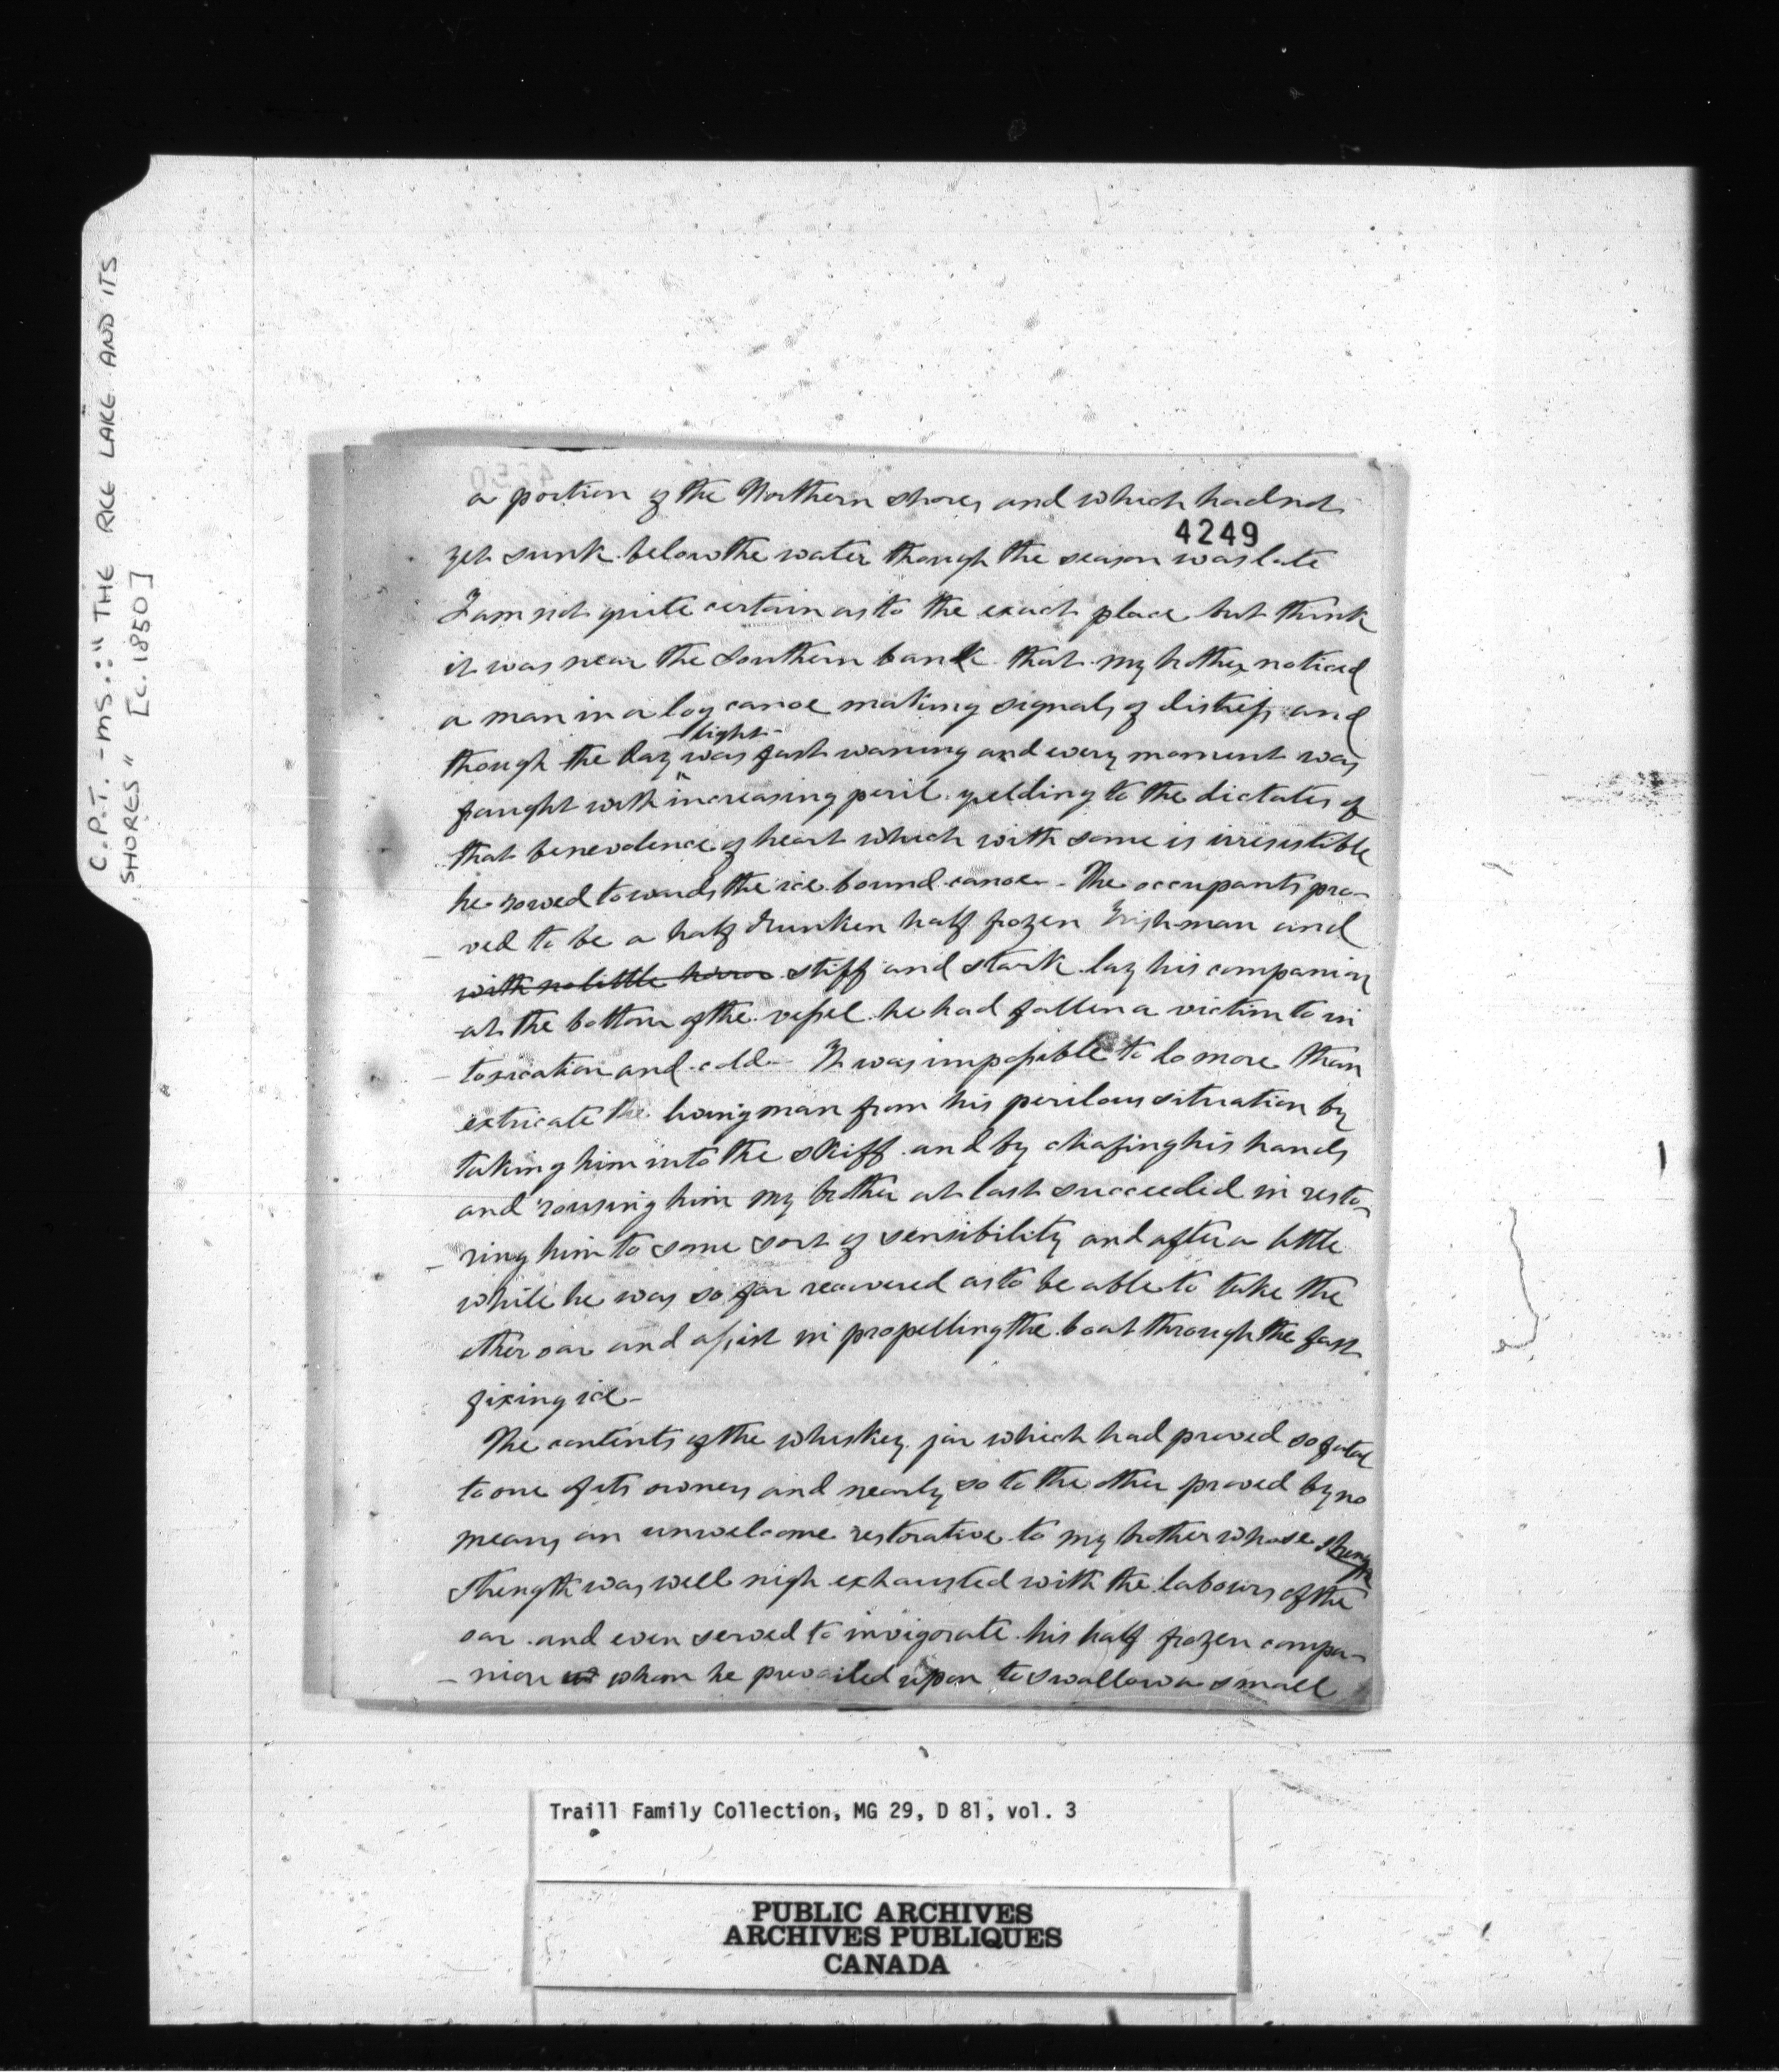 C.P.T. - MS.: "THE RICE LAKE AND ITS
SHORES" [c. 1850]
a portion of the Northern shores and which had not
4249
yet sunk below the water though the season was late
I am not quite certain as to the exact place but think
it was near the Southern bank that my brother noticed
a man in a log canoe making signals of distress and
light
though the day was fast waning and every moment was
fraught with increasing peril yelding to the dictates of
that benevolence of heart which with some is irresistible
he rowed towards the ice bound canoe - The occupants pro-
ved to be a half drunken half frozen Irishman and
with no little horror stiff and stark lay his companion
at the bottom of the vessel he had fallen a victim to in
- toxication and cold - It was impossible to do more than
extricate the living man from his perilous situation by
taking him into the skiff and by chafing his hands
and rousing him my brother at last succeeded in resto-
- ring him to some sort of sensibility and after a little
while he was so far recovered as to be able to take the
other oar and assist in propelling the boat through the fast
fixing ice -
The contents of the whiskey jar which had proved so fatal
to one of its owners and nearly so to the other proved by no
means an unwelcome restorative to my brother whose
strength was well nigh exhausted with the labours of the
oar and even served to invigorate his half frozen compa-
- nion whom he prevailed upon to swallow a small
Traill Family Collection, MG 29, D 81, vol. 3
PUBLIC ARCHIVES
ARCHIVES PUBLIQUES
CANADA